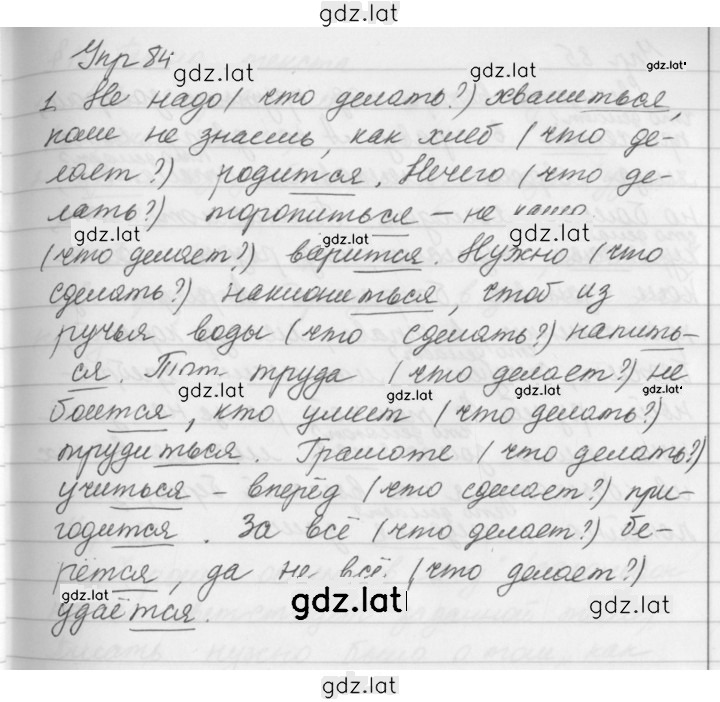 gdz.lat
Упр 84
gdz.lat
gdz.lat
1. Не надо (что делать?) хвалиться,
коли не знаешь, как хлеб (что де-
лает?) родится. Нечего (что де-
лать?) торопиться – не
gdz.lat
gdz.lat
(что делает?) варится. Нужно (что
сделать?) наклониться, чтоб из
ручья воды (что сделать?) напить-
ся. Тот труда (что делает?) не
gdz.lat
gdz.lat
боится, кто умеет (что делать?)
трудиться. Грамоте (что делать?)
учиться – вперёд (что сделает?) при-
годится. За всё (что делает?) бе-
рётся, да не всё (что делает?)
gdz.lat
gdz.lat
gdz.lat
удаётся.
gdz.lat